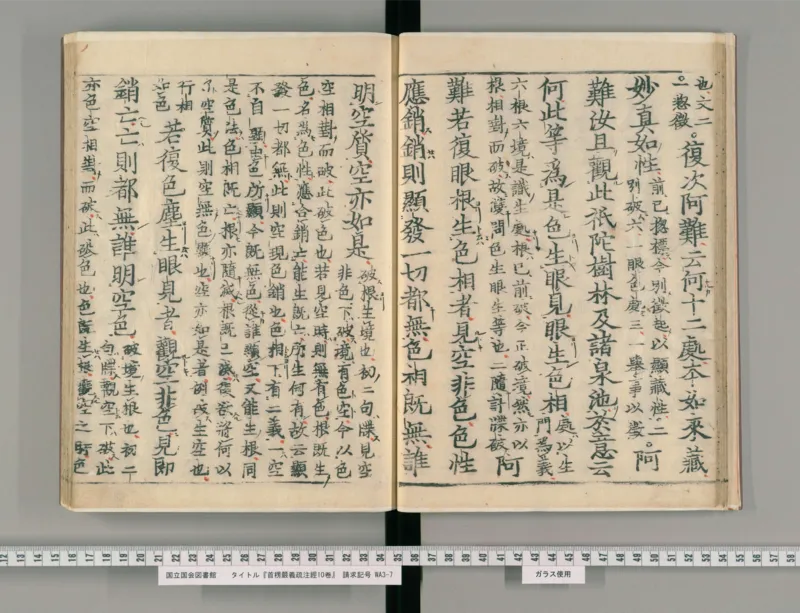 也文二
一揔徵
復次阿難云何十二處本如來藏
妙真如性
前已揔標今別徵起以顯藏性二
別破六一眼色處三一舉事以徵
阿
難汝且觀此祇陀樹林及諸泉池於意云
何此等為是色生眼見眼生色相
處以生
門為義
六根六境是識生處根已前破今正破境然亦以
根相對而破故雙問色生眼生等也二隨計牒破
阿
難若復眼根生色相者見空非色色性
應銷銷則顯發一切都無色相既無誰
明空質空亦如是
破根生境也初二句牒見空
非色下破境有色空今以色
空相對而破此破色也若見空時則無有色根既生
色名為色性應合銷亡能生既亡所生何有故云顯
發一切都無此則空現色銷也色相下有二義一空
不自顯由色所顯今既無色從誰顯空又能生根同
是色法色相既亡根亦隨滅根既已滅復將何以
尔空質此則空無色也空亦如是者例生空也
行相
如色
若復色塵生眼見者觀空非色見即
銷亡亡則都無誰明空色
破境生根也初二
句牒觀空下破此
亦色空相對而破此破色也色既生根觀空之時色
国立国会図書館 タイトル『首楞厳義疏注経10巻』 請求記号 WA3-7
ガラス使用